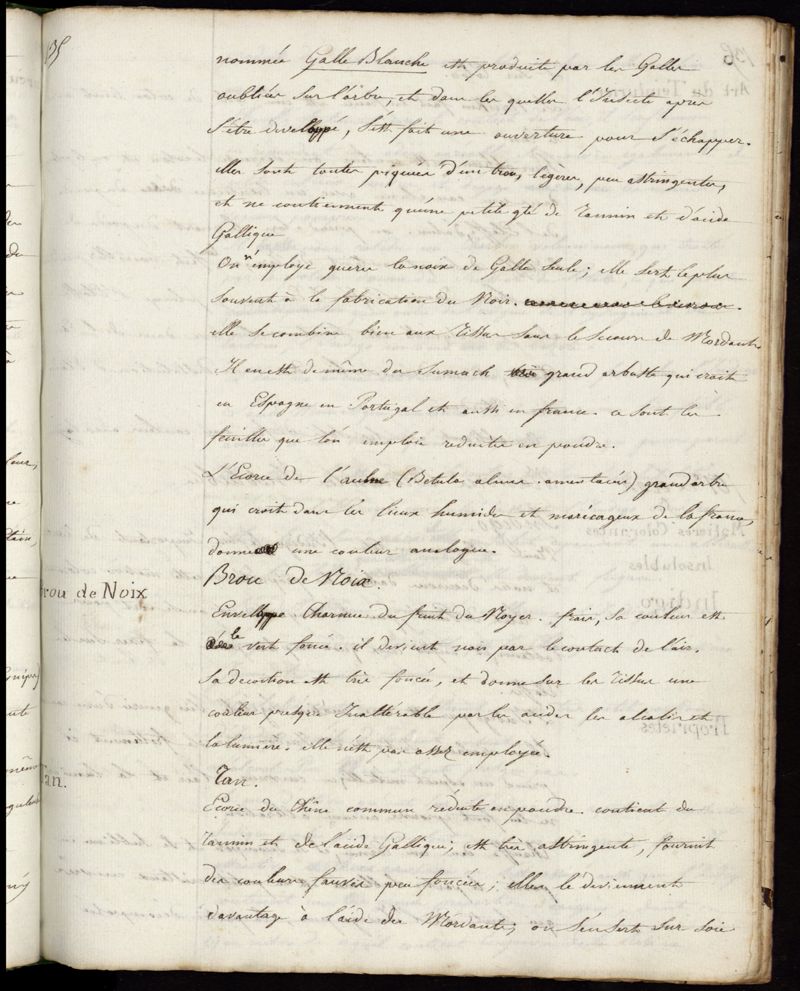 135
nommée Galle Blanche est produite par les Galles
oubliées sur l'arbre, et dans les quelles l'Insecte apres
s'être developpé, s'est fait une ouverture pour s'échapper.
elles sont toutes piquées d'un trou, légères, peu astringentes,
et ne contiennent qu'une petite qté de Tannin et d'acide
Gallique
On n'employe guere la noix de Galle seule; elle sert le plus
souvent à la fabrication du Noir.
elle se combine bien aux Tissus sans le secours de Mordants
Il en est de même du Sumach grand arbuste qui croit
en Espagne en Portugal et aussi en france. ce sont les
feuilles que l'on emploie reduites en poudre.
L'Ecorce de l'aulne (Betula alnus. amentacées) grand arbre
qui croit dans les lieux humides et marécageux de la france,
donne une couleur analogue.
Brou de Noix.
Brou de Noix
Enveloppe Charnue du fruit du Noyer. frais, sa couleur est
le vert foncé. il devient noir par le contact de l'air.
Sa decoction est très foncée, et donne sur les Tissus une
couleur presque Inaltérable par les acides les alcalis et
la lumière. elle n'est pas assez employée.
Tan.
Tan.
Ecorce du Chêne commun réduite en poudre. contient du
Tannin et de l'acide Gallique; est très astringente, fournit
des couleurs fauves peu foncées; elles le deviennent
davantage à l'aide des Mordants; on s'en sert sur soie